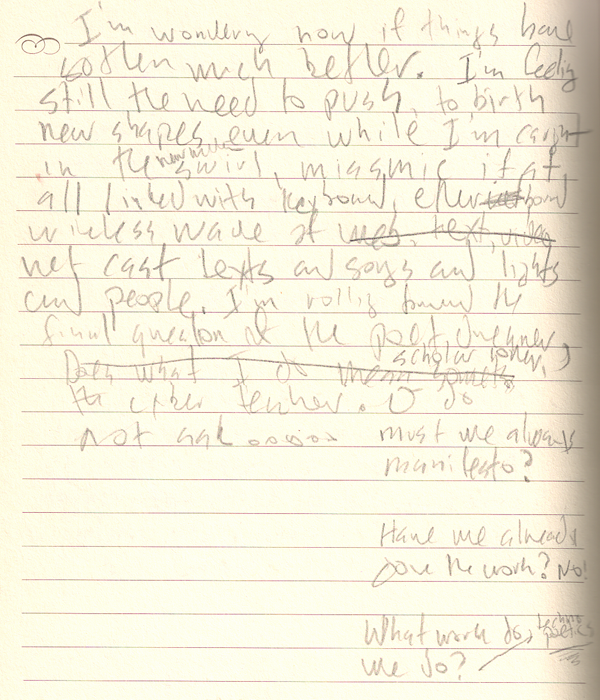 I'm wondering now if things have
gotten much better. I'm feeling
still the need to push, to birth
new shapes, even while I'm caught
in the swirl, miasmic if at
all linked with keyboard,
wireless wave of web, text, video
net cast texts and songs and lights
and people. I'm rolling toward the
final question of the poet, dreamer,
scholar
Does what I do mean
the cyber teacher. O do
not ask......
must we always
manifesto?
Have we already
done the work? No!
What work do techno poetics
we do?